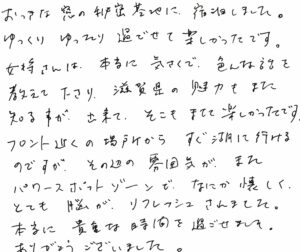 おっきな窓の秘密基地に、宿泊しました。
ゆっくり ゆったり 過ごせて 楽しかったです。
女将さんは、本当に 気さくで、色んな話を
教えて下さり、滋賀県の 魅力も また
知る事が 出来て、そこも また 楽しかったです。
フロント近くの 場所から すぐ 湖に 行ける
のですが、その辺の 雰囲気が また
パワースポットゾーンで、なにか 懐しく、
とても 脳が、リフレッシュ されました。
本当に 貴重な 時間を 過ごせました。
ありがとうございました。